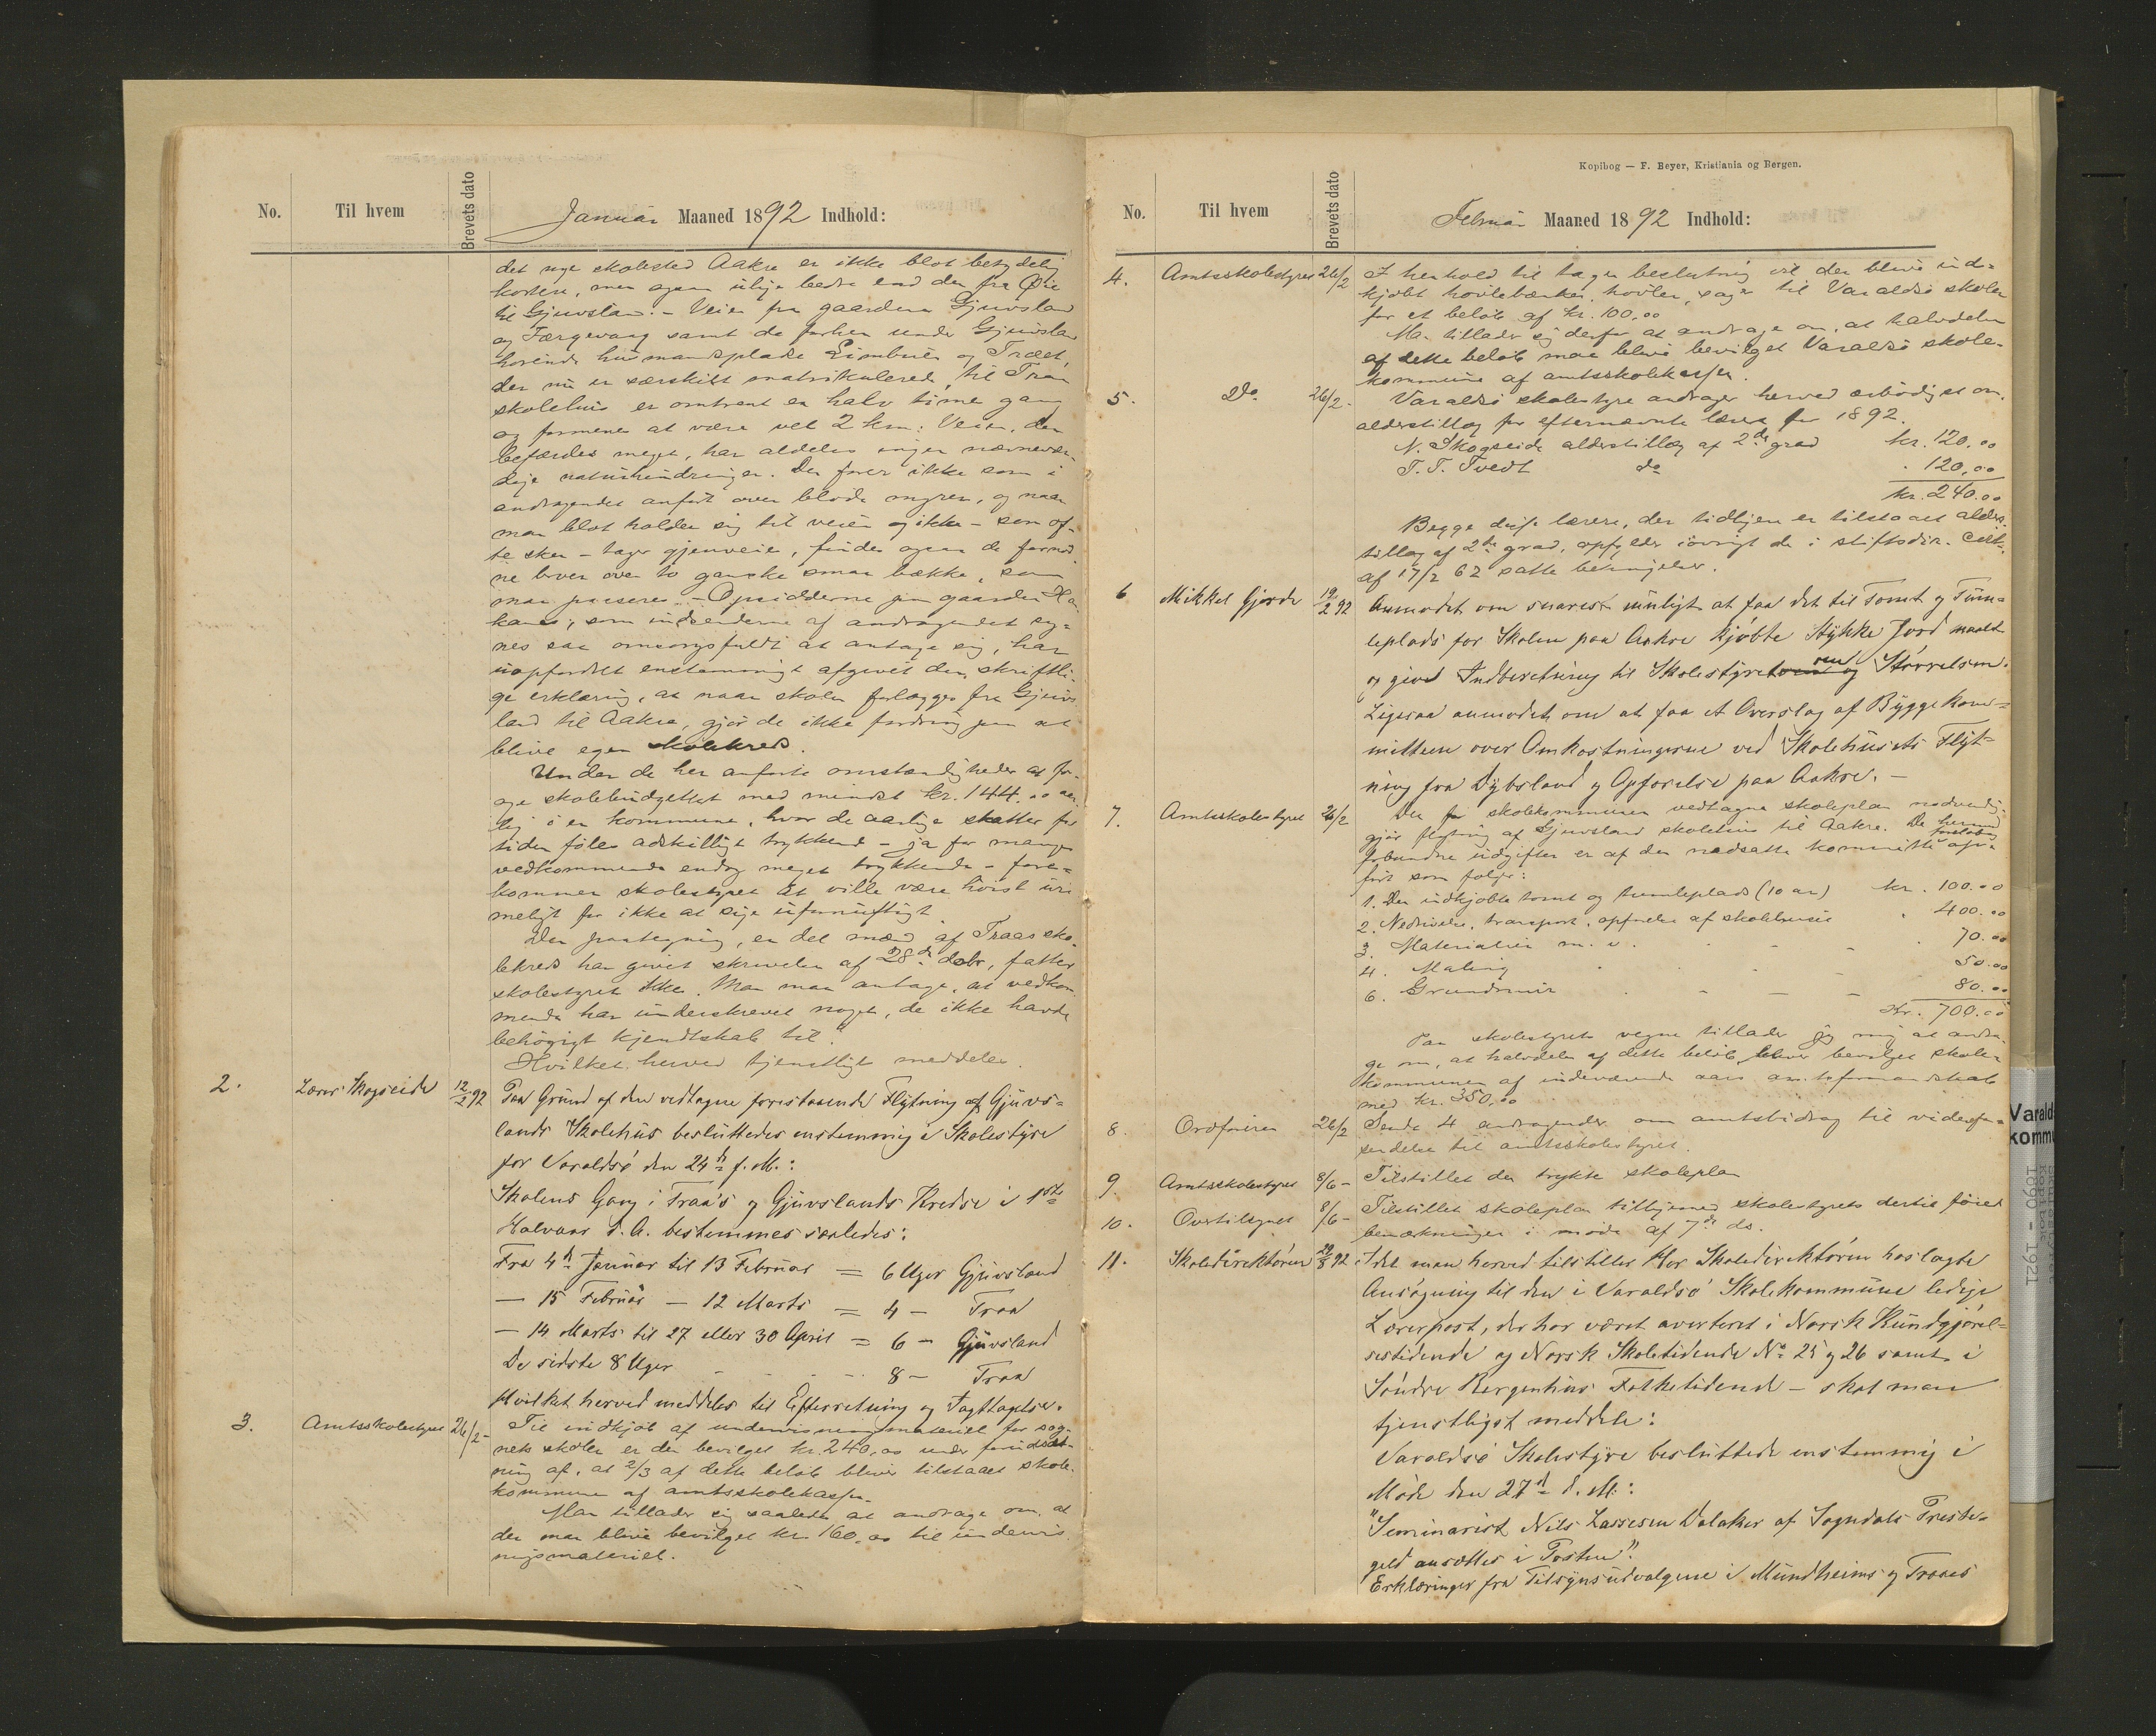 No.
Til hvem
Brevets dato
Januar Maaned 1892 Indhold:
det nye skolested Aakre er ikke blot betydelig
kortere, men ogsaa ulige bedre end den fra Øie
til Gjuvsland. - Veien fra gaardene Gjuvsland
og Færgevaag samt de forhen under Gjuvsland
hørende husmandspladse Limbuen og Træet,
der nu er særskilt matrikulerede, til Traa
skolehus er omtrent en halv time gang
og formenes at være vel 2 km: Veien, der
befærdes meget, har aldeles ingen nævnevær-
dige naturhindringer. Den fører ikke som i
andragendet anført over bløde myrer, og naar
man blot holder sig til veien og ikke - som of-
te sker - tager gjenveie, findes ogsaa de fornød
ne broer over to ganske smaa bække, som
maa passeres. - Opsidderne paa gaarden Ha
kanes, som indsenderne af andragendet sy-
nes saa omsorgsfuldt at antage sig, har
uopfordret enstemmigt afgivet den skriftli-
ge erklæring, at naar skolen forlægges fra Gjuvs
land til Aakre, gjør de ikke fordring paa at
blive egen skolekreds.
Under de her anførte omstændigheder at for-
øge skolebudgettet med mindst kr. 144.00 aar
lig i en kommune, hvor de aarlige skatter for
tiden føles adskilligt trykkend - ja for mange
vedkommende endog meget trykkende - fore-
kommer skolestyret at ville være höist uri
meligt for ikke at sige ufornuftigt.
Den paategning, en del mænd af Traas sko-
lekreds har givet skrivelse af 28de decbr, fatter
skolestyret ikke. Man maa antage, at vedkom
mende har underskrevet noget, de ikke havde
behørigt kjendtskab til."
Hvilket herved tjenstligt meddeles.
2. Lærer Skogseide 12/2 92 Paa Grund af den vedtagne forestaaende Flytning af Gjuvs-
lands Skolehus besluttedes enstemmig i Skolestyre
for Varaldsö den 24de f. M.:
Skolens Gang i Traa's og Gjuvslands Kredse i 1ste
Halvaar d. A. bestemmes saaledes:
Fra 4de Januar til 13 Februar = 6 Uger Gjuvsland
— 15 Februar — 12 Marts = 4 — Traa
— 14 Marts til 27 eller 30 April = 6 — Gjuvsland
De sidste 8 Uger - - - - 8 — Traa
Hvilket herved meddeles til Efterretning og Iagttagelse.
3. Amtsskolestyret 26/2 - Til indkjöb af undervisningsmateriel for sog-
nets skoler er der bevilget kr. 240,00 under forudsæt-
ning af, at 2/3 af dette beløb bliver tilstaaet skole-
kommunen af amtsskolekassen.
Man tillader sig saaledes at andrage om, at
der maa blive bevilget kr. 160,00 til undervis
ningsmateriel.
Kopibog — F. Beyer, Kristiania og Bergen.
No.
Til hvem
Brevets dato
Februar Maaned 1892 Indhold:
4. Amtsskolestyret 26/2 I henhold til tagen beslutning vil der blive ind-
kjöbt hövlebænker, hövler, sage til Varaldsö skoler
for et belöb af kr. 100,00
Man tillader sig derfor at andrage om, at halvdelen
af dette belöb maa blive bevilget Varaldsö skole-
kommune af amtsskolekassen.
5. Do. 26/2. Varaldsö skolestyre andrager herved ærbödigst om,
alderstillæg for efternævnte lærere for 1892.
N. Skogseide alderstillæg af 2de grad kr. 120,00
T. T. Tvedt do - 120,00
kr. 240.00
Begge disse lærere, der tidligere er tilstaaet alders-
tillæg af 2de grad, opfylder iövrigt de i stiftsdir. cirk.
af 17/2 62 satte betingelser.
6 Mikkel Gjerde 19/2 92 Anmodet om snarest muligt at faa det til Tomt og Tum-
leplads for Skolen paa Aakre kjöbte Stykke Jord maalt
og givet Indberetning til Skolestyret om Störrelsen.
Ligesaa anmodet om at faa et Overslag af Byggekom-
mitteen over Omkostningerne ved Skolehusets Flyt-
ning fra Dybsland og Opförelse paa Aakre. —
7. Amtsskolestyret 26/2 Den for skolekommunen vedtagne skoleplan nødvendig-
gjör flytning af Gjuvsland skolehus til Aakre. De hermed
forbundne udgifter er af den nedsatte kommitte foreløbig op-
fört som følger:
1. Den indkjöbte tomt og tumleplads (10 ar) kr. 100.00
2. Nedrivelse, transport, opförelse af skolehuset - 400.00
3. Materialier m. v. - - - 70.00
4. Maling - - - 50.00
6. Grundmur - - - 80.00
Kr. 700.00
Paa skolestyrets vegne tillader jeg mig at andra-
ge om, at halvdelen af dette beløb bliver bevilget skole-
kommunen af indeværende aars amtsformandskab
med kr. 350,00
8. Ordföreren 26/2 Sendt 4 andragender om amtsbidrag til videre for-
sendelse til amtsskolestyret.
9. Amtsskolestyret 8/6 - Tilstillet den trykte skoleplan
10. Overtilsynet 8/6 - Tilstillet skoleplan tilligemed skolestyrets dertil föiet
bemærkninger i möde af 7de ds.
11. Skoledirektören 29/8 92 Idet man herved tilstiller Hr Skoledirektören hoslagte
Ansögning til den i Varaldsö Skolekommune ledige
Lærerpost, der har været averteret i Norsk Kundgjörel-
sestidende og Norsk Skoletidende No 25 og 26 samt i
Söndre Bergenhus Folketidende — skal man
tjenstligst meddele:
Varaldsö Skolestyre besluttede enstemmig i
Möde den 27de d. M.:
"Seminarist Nils Lassesen Dalaker af Sogndals Preste-
geld ansættes i Posten".
Erklæringer fra Tilsynsudvalgene i Mundheims og Traaes
Varalds
kommu
1890 - 1921